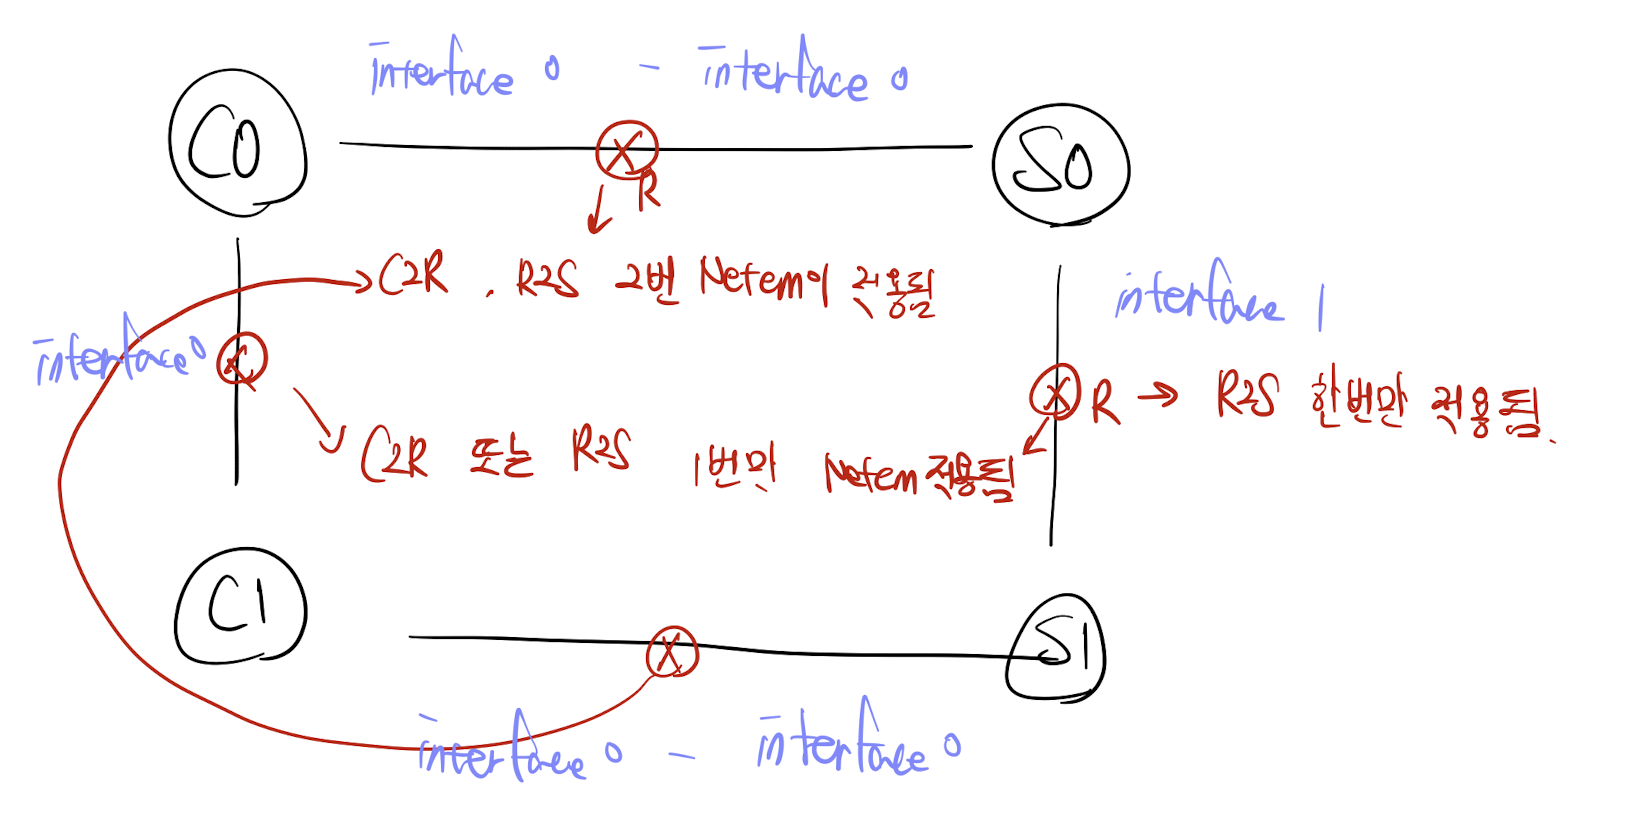 interface 0 - interface 0
C0
S0
X
R
C2R . R2S 2번 Netem이 적용됨
interface 1
interface 0
X
X R → R2S 한번만 적용됨.
C2R 또는 R2S 1번만 Netem 적용됨
C1
S1
X
interface 0 - interface 0